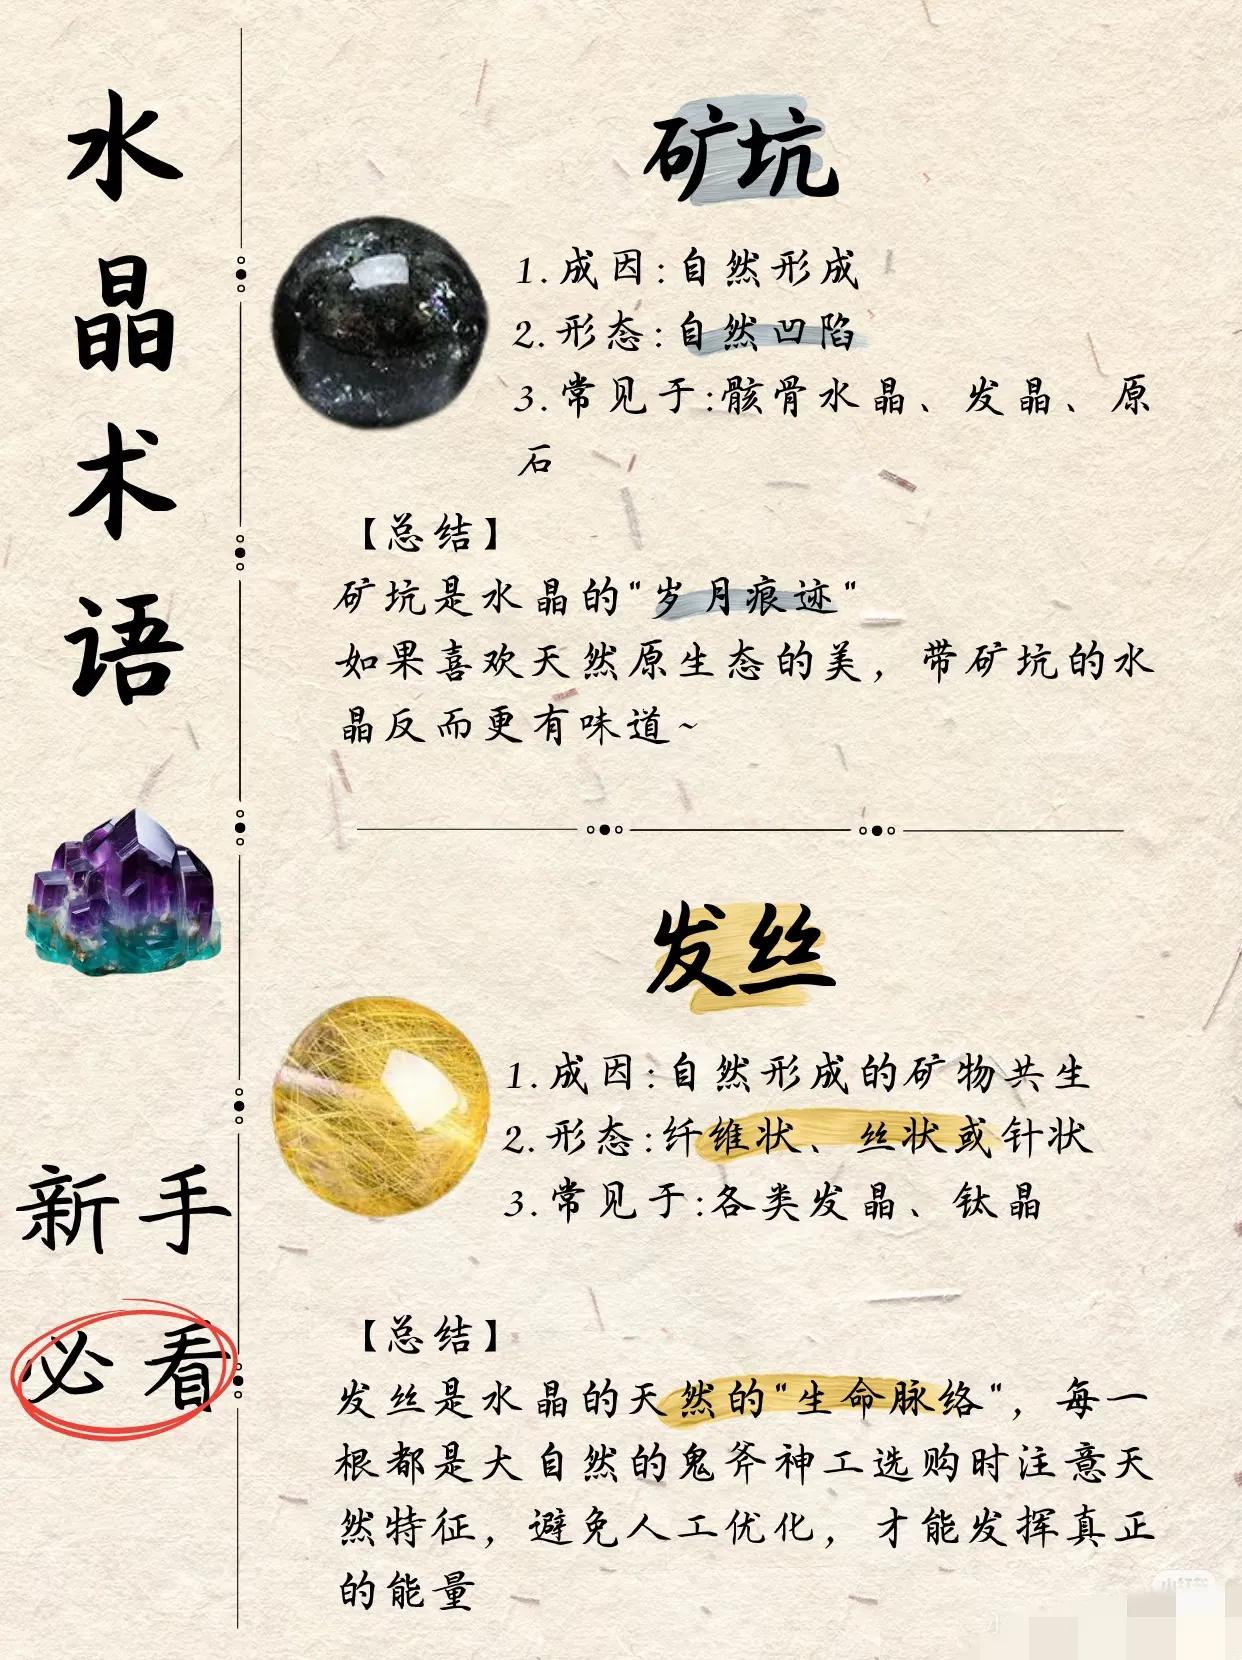 水晶术语
新手
必看
矿坑
1.成因:自然形成
2.形态:自然凹陷
3.常见于:骸骨水晶、发晶、原
石
【总结】
矿坑是水晶的"岁月痕迹"
如果喜欢天然原生态的美，带矿坑的水
晶反而更有味道~
发丝
1.成因:自然形成的矿物共生
2.形态:纤维状、丝状或针状
3.常见于:各类发晶、钛晶
【总结】
发丝是水晶的天然的"生命脉络"，每一
根都是大自然的鬼斧神工选购时注意天
然特征，避免人工优化，才能发挥真正
的能量